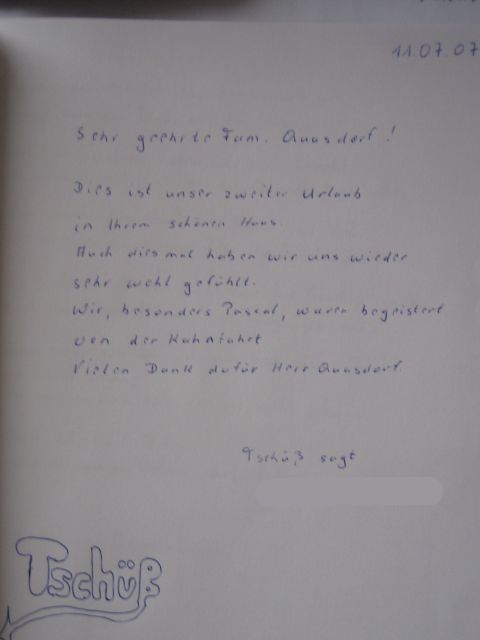 11.07.07
Sehr geehrte Fam. Quasdorf!
Dies ist unser zweiter Urlaub
in Ihrem schönen Haus.
Auch diesmal haben wir uns wieder
sehr wohl gefühlt.
Wir, besonders Pascal, waren begeistert
von der Kahnfahrt
Vielen Dank dafür Herr Quasdorf.
Tschüß sagt
Tschüß